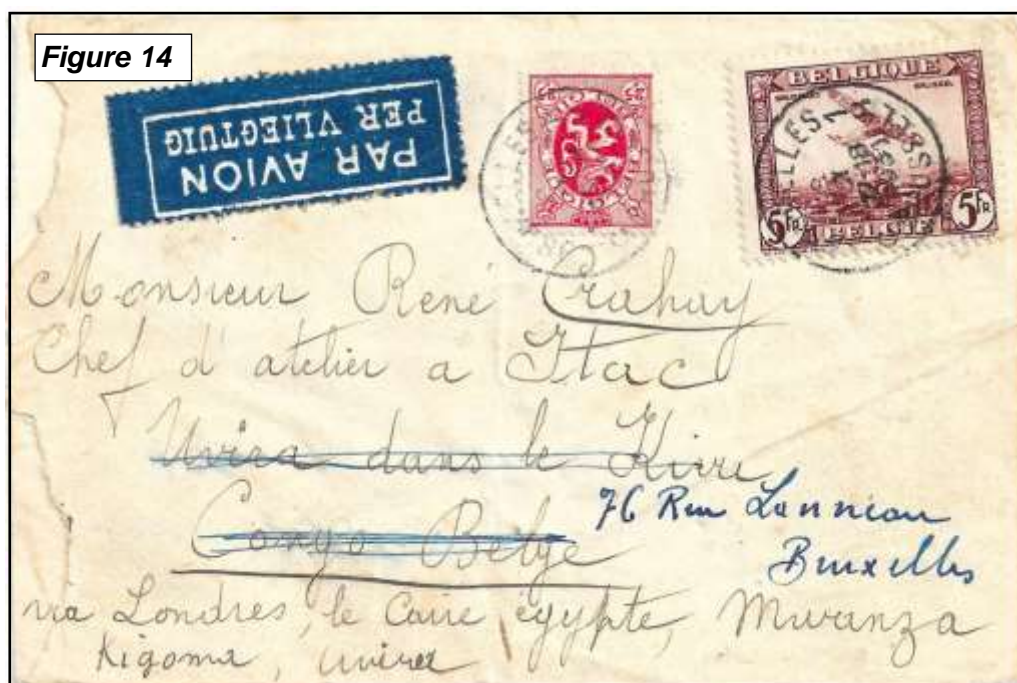 Figure 14
PAR AVION
PER VLIEGTUIG
BELGIQUE
5 FR 5 FR
BELGIE
Monsieur René Crahay
Chef d'atelier a Itac
Uvira dans le Kivu
Congo Belge
76 Rue Lannion
Bruxelles
via Londres, le Caire égypte, Mwanza
Kigoma, uvira